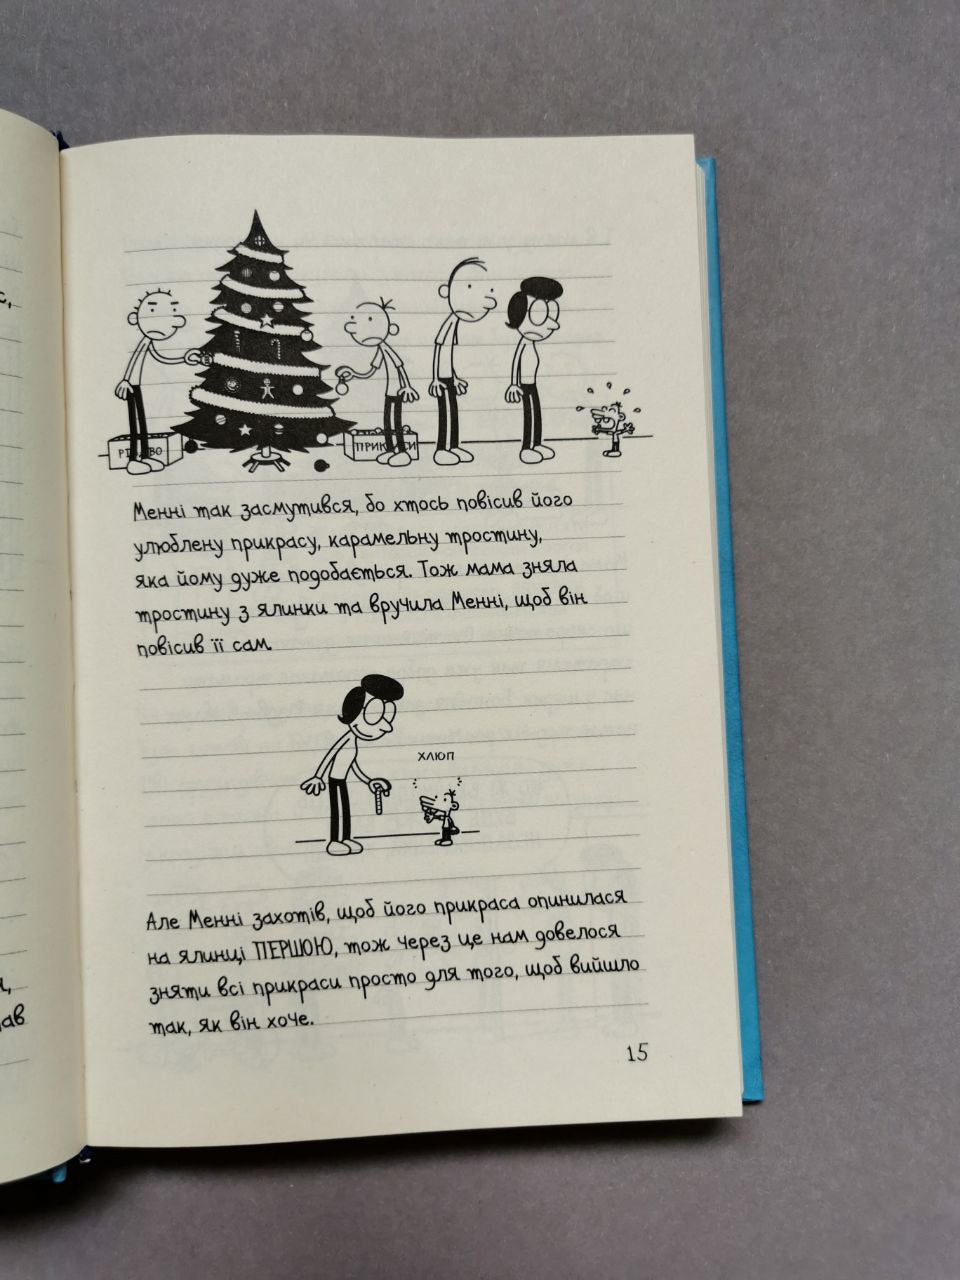 ПРИКРАСИ
Менні так засмутився, бо хтось повісив його
улюблену прикрасу, карамельну тростину,
яка йому дуже подобається. Тож мама зняла
тростину з ялинки та вручила Менні, щоб він
повісив її сам.
ХЛЮП
Але Менні захотів, щоб його прикраса опинилася
на ялинці ПЕРШОЮ, тож через це нам довелося
зняти всі прикраси просто для того, щоб вийшло
так, як він хоче.
15